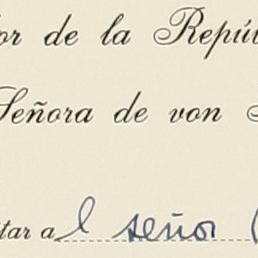 or de la Repú
Señora de von
tar al señor